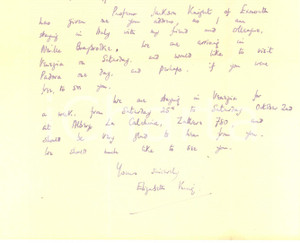 Professor Jackson Knight of Exeter
has given me your address, as I am
staying in Italy with my friend and
We are arriving in
Venezia on Saturday, and would like to visit
Padova one day, and perhaps, if you were
free, to see you.
We are staying in Venezia for
a week, from Saturday 25th to Saturday October 2nd
at Albergo La Calcina, Zattere 780, and
should be very glad to hear from you.
We should much like to see you.
Yours sincerely
Elizabeth